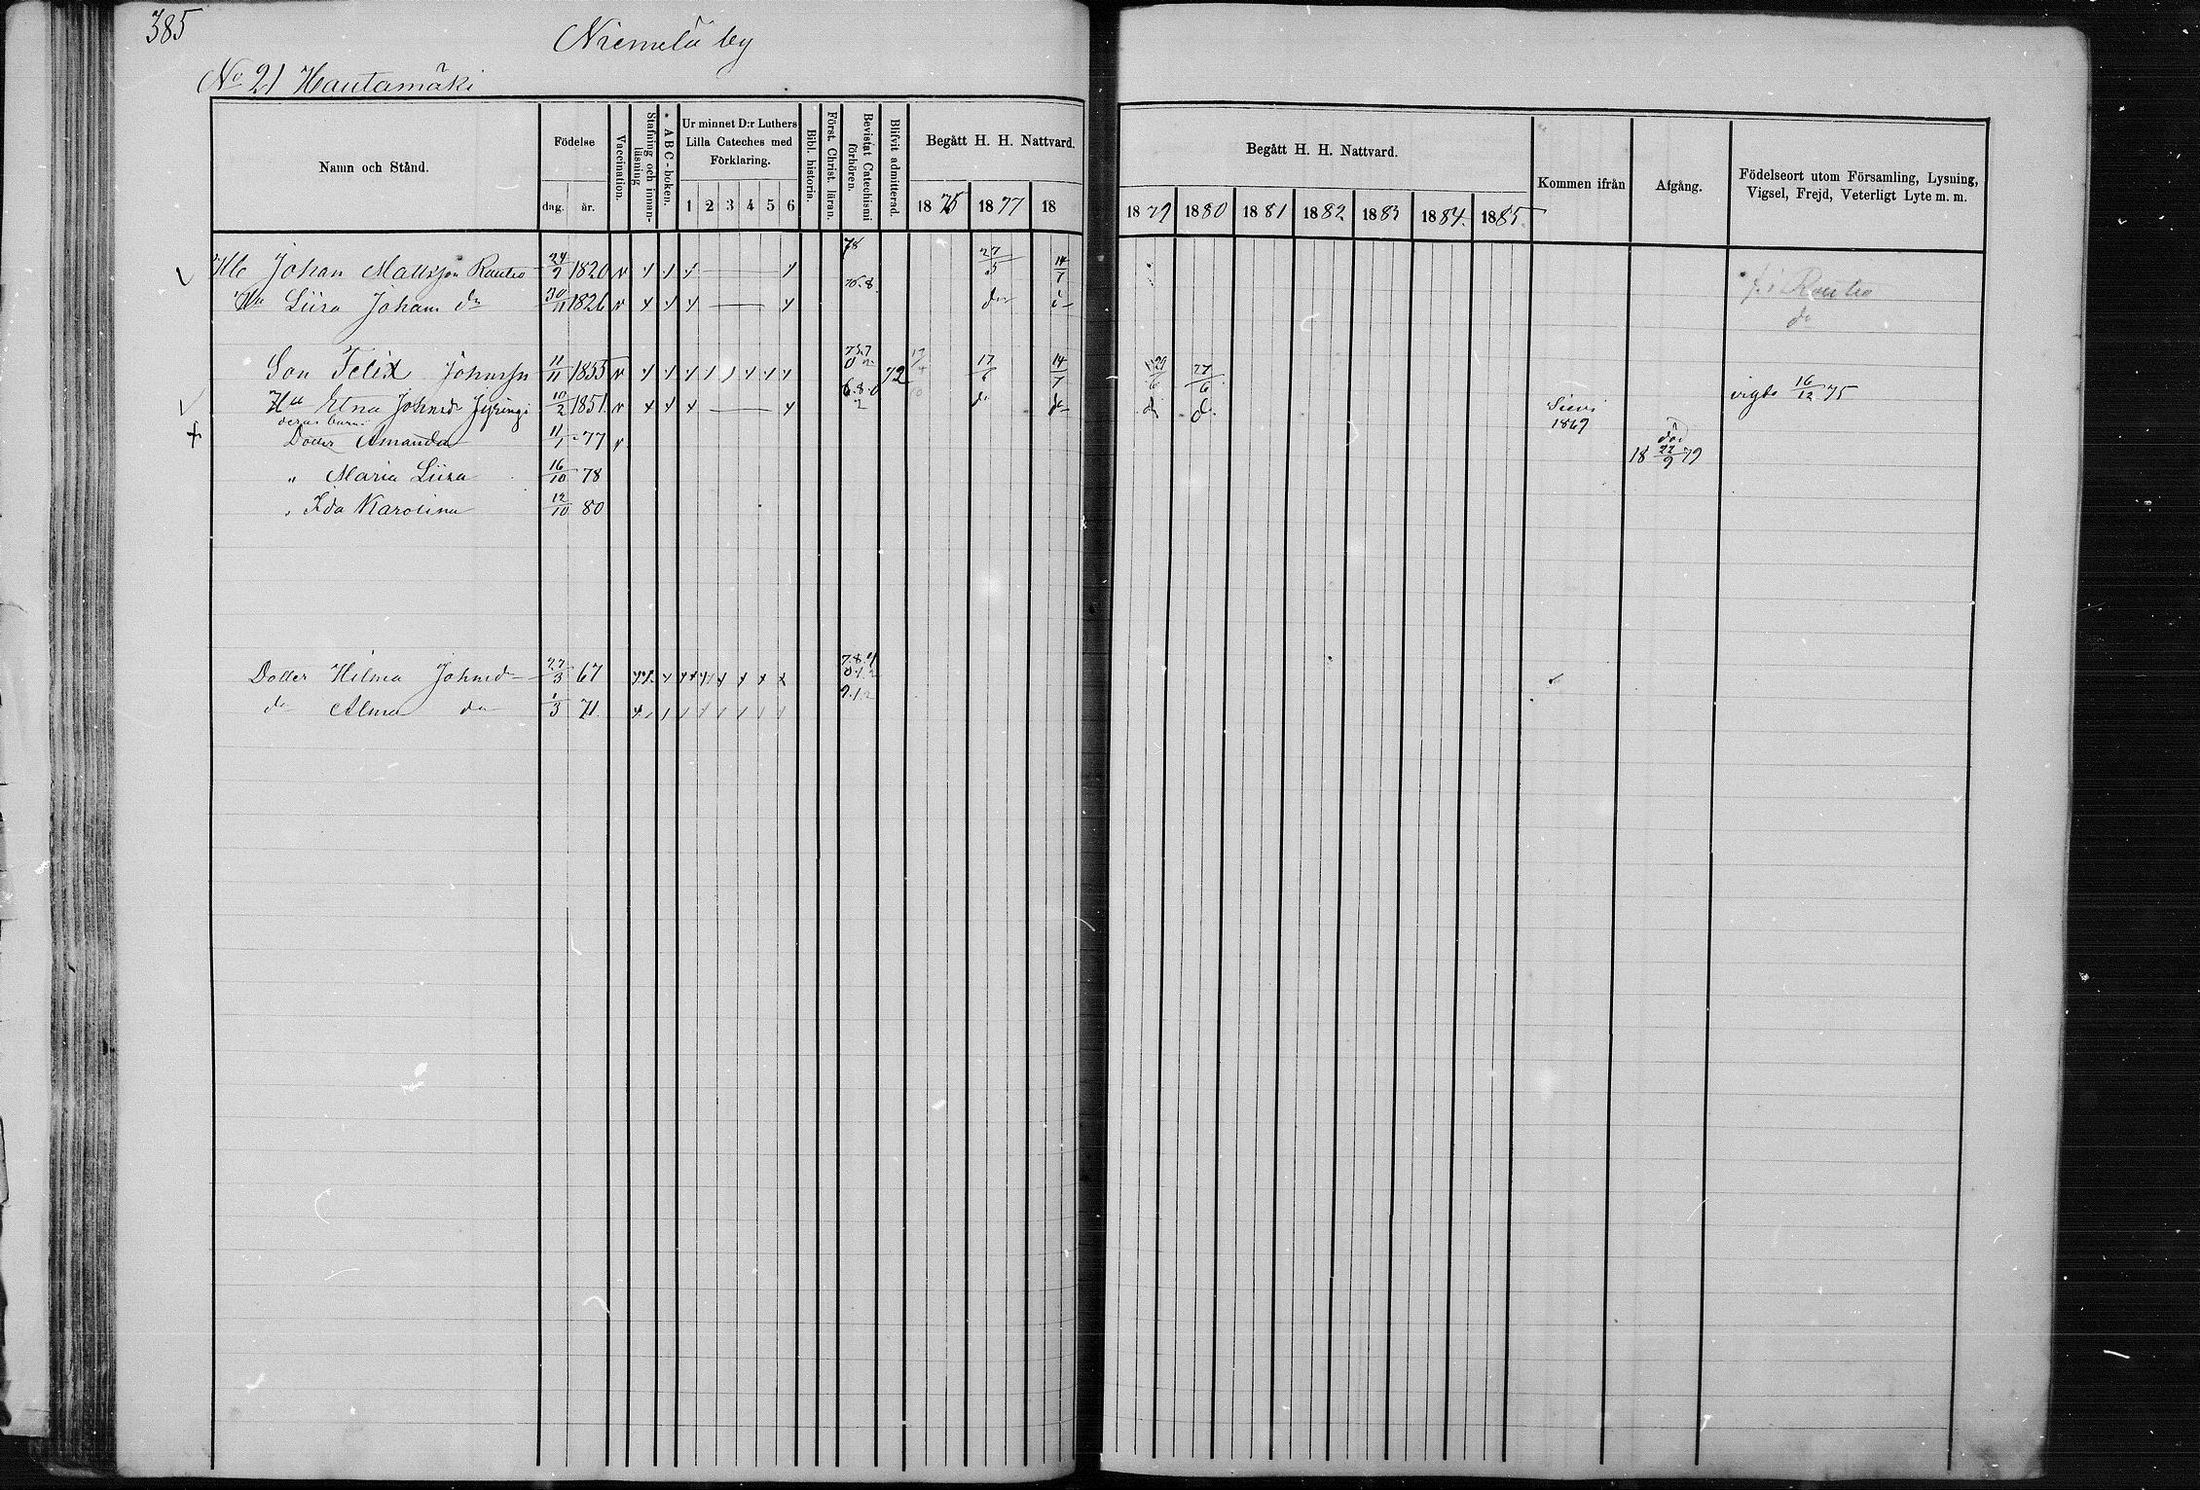 385
Niemelä by
No 21 Hautamäki
Namn och Stånd.
Födelse
dag. år.
Vaccination.
Stafning och innan-läsning
* ABC-boken.
Ur minnet D:r Luthers Lilla Cateches med Förklaring.
1 2 3 4 5 6
Bibl. historia.
Först. Christ. läran.
Bevistat Catechismi förhören.
Blifvit admitterad.
Begått H. H. Nattvard.
1876 1877 18
Begått H. H. Nattvard.
1879 1880 1881 1882 1883 1884. 1885.
Kommen ifrån
Afgång.
Födelseort utom Församling, Lysning, Vigsel, Frejd, Veterligt Lyte m. m.
Johan Mattsson Rautio 24/9 1820 v 78 27/5 14/7 Rautio
Hu Liisa Johans dr 30/11 1826 v do do
Son Felix Johnssn 11/11 1855 v 72 17/6 14/7 27/6
Hu Etna Johnsdr Jyringi 10/2 1851 v do do d do Sievi 1869 vigde 16/12 75
deras barn:
Dotter Amanda 11/1 77 v död 18 22/9 79
" Maria Liisa 16/10 78
" Ida Karolina 12/10 80
Dotter Hilma Johnsd 27/3 67
do Alma do 1/3 71